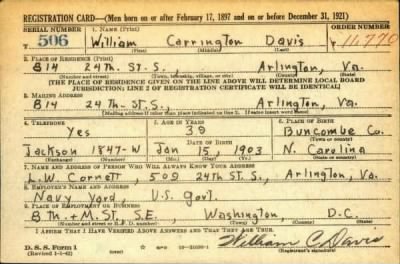 REGISTRATION CARD—(Men born on or after February 17, 1897 and on or before December 31, 1921)
SERIAL NUMBER 1. NAME (Print) ORDER NUMBER
T 506 William Carrington Davis 11,770
(First) (Middle) (Last)
2. PLACE OF RESIDENCE (Print)
814 24th. St. S., Arlington, Va.
(Number and street) (Town, township, village, or city) (County) (State)
[THE PLACE OF RESIDENCE GIVEN ON THE LINE ABOVE WILL DETERMINE LOCAL BOARD
JURISDICTION; LINE 2 OF REGISTRATION CERTIFICATE WILL BE IDENTICAL]
3. MAILING ADDRESS
814 24th St., S., Arlington, Va.
[Mailing address if other than place indicated on line 2. If same insert word same]
4. TELEPHONE 5. AGE IN YEARS 6. PLACE OF BIRTH
Yes 39 Buncombe Co.
DATE OF BIRTH (Town or county)
Jackson 1847-W Jan 15, 1903 N. Carolina
(Exchange) (Number) (Mo.) (Day) (Yr.) (State or country)
7. NAME AND ADDRESS OF PERSON WHO WILL ALWAYS KNOW YOUR ADDRESS
L.W. Cornett, 509 24th St. S., Arlington, Va.
8. EMPLOYER'S NAME AND ADDRESS
Navy Yard, U.S. Govt.
9. PLACE OF EMPLOYMENT OR BUSINESS
8th. + M. St., S.E., Washington, D.C.
(Number and street or R. F. D. number) (Town) (County) (State)
I AFFIRM THAT I HAVE VERIFIED ABOVE ANSWERS AND THAT THEY ARE TRUE.
D. S. S. Form 1
(Revised 1-1-42) (over) William C. Davis
(Registrant's signature)